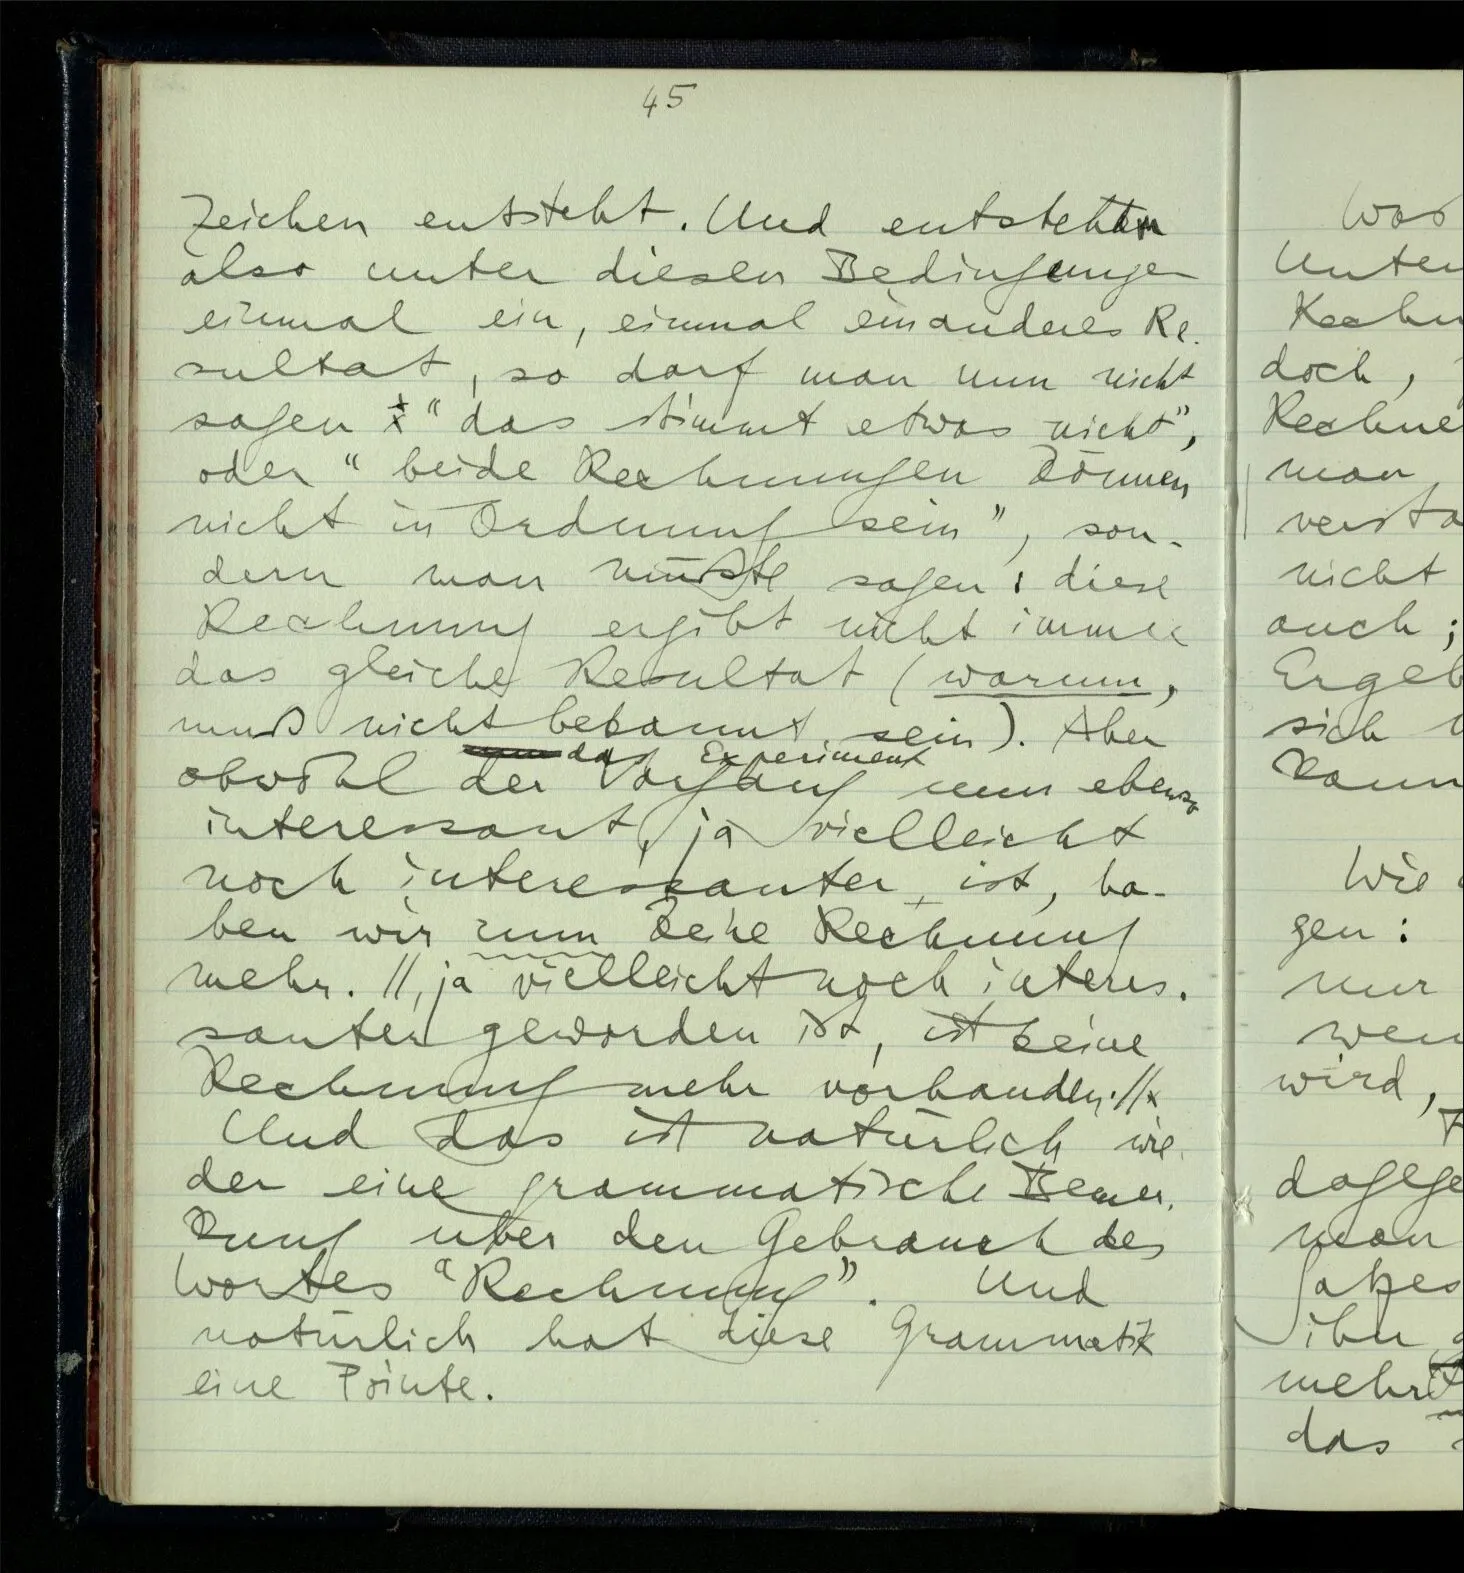 45
Zeichen entsteht. Und entstehen
also unter diesen Bedingungen
einmal ein, einmal ein anderes Re-
sultat, so darf man nun nicht
sagen "das stimmt etwas nicht",
oder "beide Rechnungen können
nicht in Ordnung sein", son-
dern man müßte sagen: diese
Rechnung ergibt nicht immer
das gleiche Resultat (warum,
muß nicht bekannt sein). Aber
das Experiment
obwohl der Vorgang nun ebenso
interessant, ja vielleicht
noch interessanter ist, ha-
ben wir nun keine Rechnung
mehr. //, ja vielleicht noch interes-
santer geworden ist, ist keine
Rechnung mehr vorhanden.//
Und das ist natürlich wie-
der eine grammatische Bemer-
kung über den Gebrauch des
Wortes "Rechnung". Und
natürlich hat diese Grammatik
eine Pointe.
Was
Unter
Rechn
doch,
Rechne
man
versta
nicht
auch;
Ergeb
sich
kann
Wie
gen:
nur
wen
wird,
dagege
man
Satzes
ihn
mehr
das